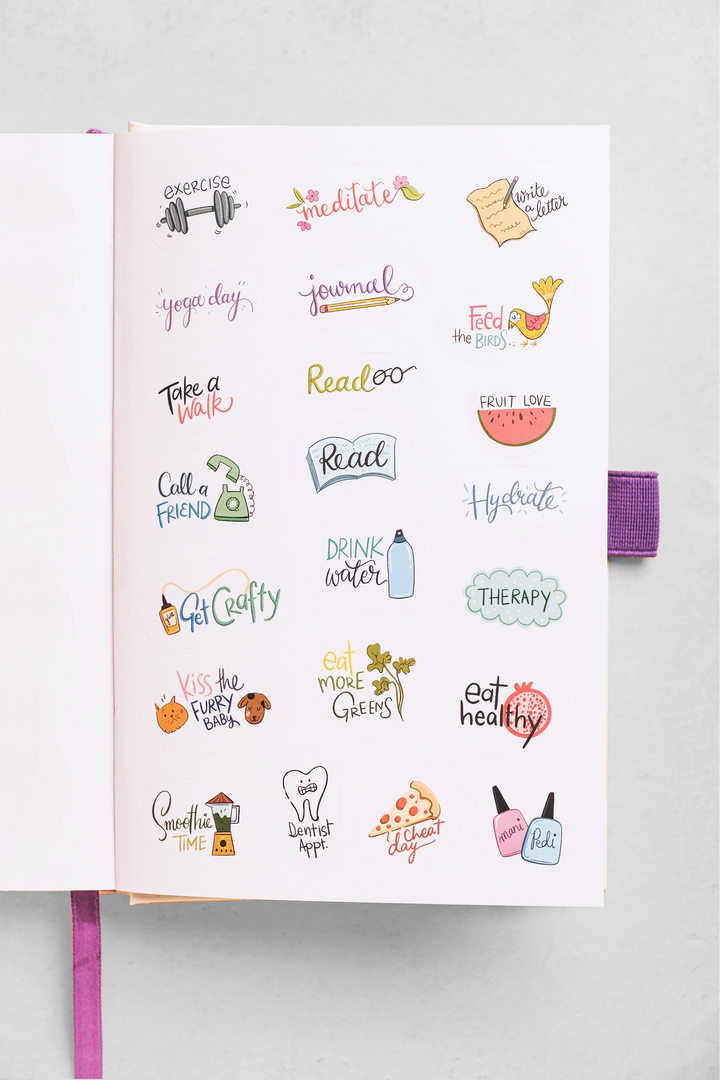 exercise
meditate
write
a letter
yoga day
journal
Feed
the BIRDS
Take a
Walk
Read
FRUIT LOVE
Call a
FRIEND
Read
Hydrate
DRINK
water
Get Crafty
THERAPY
Kiss the
FURRY
BABY
eat
MORE
GREENS
eat
healthy
Smoothie
TIME
Dentist
Appt.
Cheat
day
mani
Pedi